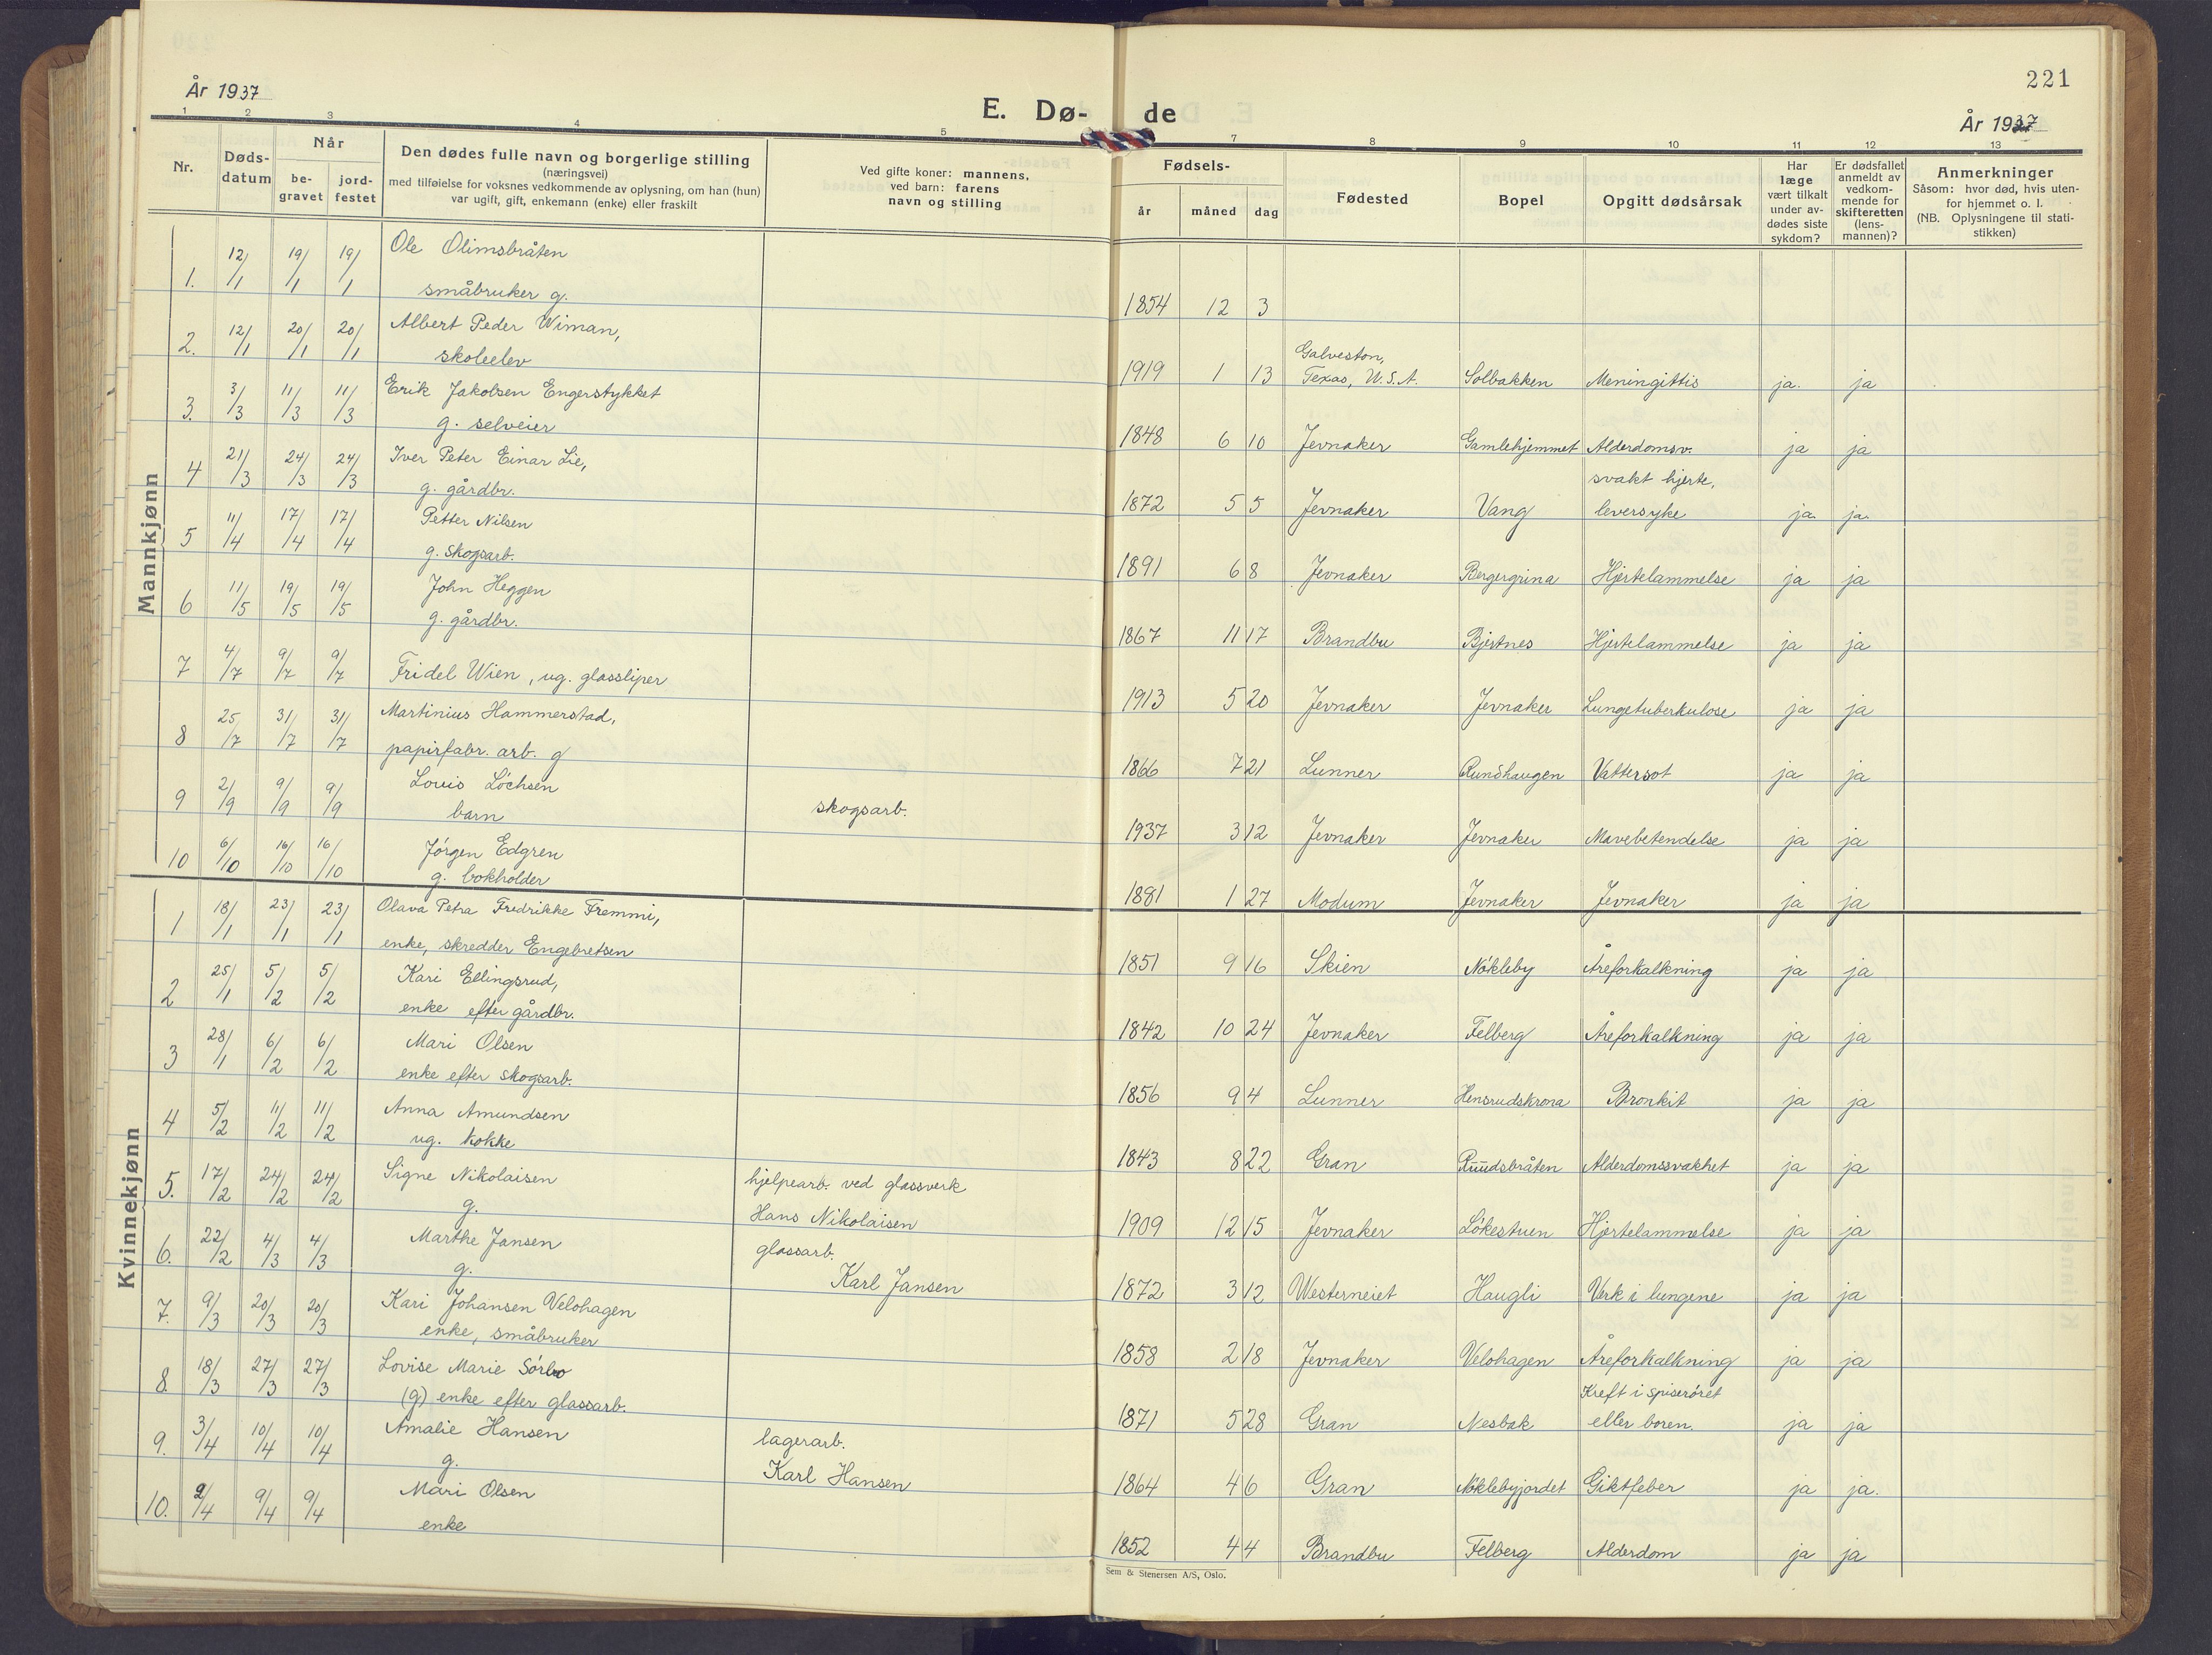 221
År 1937
E. Dø-de
År 1937
1 2 3 4 5 7 8 9 10 11 12 13
Nr. Døds-datum Når be-gravet jord-festet
Den dødes fulle navn og borgerlige stilling
(næringsvei)
med tilføielse for voksnes vedkommende av oplysning, om han (hun)
var ugift, gift, enkemann (enke) eller fraskilt
Ved gifte koner: mannens,
ved barn: farens
navn og stilling
Fødsels- år måned dag
Fødested
Bopel
Opgitt dødsårsak
Har læge vært tilkalt under av-dødes siste sykdom?
Er dødsfallet anmeldt av vedkom-mende for skifteretten (lens-mannen)?
Anmerkninger
Såsom: hvor død, hvis uten-
for hjemmet o. l.
(NB. Oplysningene til stati-
stikken)
Mannkjønn
1. 12/1 19/1 19/1 Ole Olimsbråten
småbruker g. 1854 12 3
2. 12/1 20/1 20/1 Albert Peder Wiman,
skoleelev 1919 1 13 Galveston,
Texas, U.S.A. Solbakken Meningittis ja. ja
3. 3/3 11/3 11/3 Erik Jakobsen Engerstykket
g. selveier 1848 6 10 Jevnaker Gamlehjemmet Alderdomsv. ja ja
4 21/3 24/3 24/3 Iver Peter Einar Lie,
g. gårdbr. 1872 5 5 Jevnaker Vang svakt hjerte,
leversyke ja. ja.
5 11/4 17/4 17/4 Petter Nilsen
g. skogsarb. 1891 6 8 Jevnaker Bergergrina Hjertelammelse ja ja
6 11/5 19/5 19/5 John Heggen
g. gårdbr. 1867 11 17 Brandbu Bjertnes Hjertelammelse ja ja
7 4/7 9/7 9/7 Fridel Wien, ug. glassliper 1913 5 20 Jevnaker Jevnaker Lungetuberkulose ja ja
8 25/7 31/7 31/7 Martinius Hammerstad,
papirfabr. arb. g 1866 7 21 Lunner Rundhaugen Vattersot ja ja
9 2/9 9/9 9/9 Louis Løchsen
barn skogsarb. 1937 3 12 Jevnaker Jevnaker Mavebetendelse ja ja
10 6/10 16/10 16/10 Jørgen Edgren
g. bokholder 1881 1 27 Modum Jevnaker Jevnaker ja ja
Kvinnekjønn
1 18/1 23/1 23/1 Olava Petra Fredrikke Fremmi,
enke, skredder Engebretsen 1851 9 16 Skien Nøkleby Åreforkalkning ja ja
2 25/1 5/2 5/2 Kari Ellingsrud,
enke efter gårdbr. 1842 10 24 Jevnaker Felberg Åreforkalkning ja ja
3 28/1 6/2 6/2 Mari Olsen
enke efter skogsarb. 1856 9 4 Lunner Hensrudskrona Bronkit ja ja
4 5/2 11/2 11/2 Anna Amundsen
ug. kokke 1843 8 22 Gran Ruudsbråten Alderdomssvakhet ja ja
5. 17/2 24/2 24/2 Signe Nikolaisen
g. hjelpearb. ved glassverk
Hans Nikolaisen 1909 12 15 Jevnaker Løkestuen Hjertelammelse ja ja
6. 22/2 4/3 4/3 Marthe Jansen
g. glassarb.
Karl Jansen 1872 3 12 Westerneiet Haugli Verk i lungene ja ja
7. 9/3 20/3 20/3 Kari Johansen Velohagen
enke, småbruker 1858 2 18 Jevnaker Velohagen Åreforkalkning ja ja
8. 18/3 27/3 27/3 Lovise Marie Sørbo
(g) enke efter glassarb. 1871 5 28 Gran Nesbak Kreft i spiserøret
eller boren. ja ja
9. 3/4 10/4 10/4 Amalie Hansen
g. lagerarb.
Karl Hansen 1864 4 6 Gran Nøklebyjordet Giktfeber ja ja.
10. 2/4 9/4 9/4 Mari Olsen
enke 1852 4 4 Brandbu Felberg Alderdom ja ja
Sem & Stenersen A/S, Oslo.